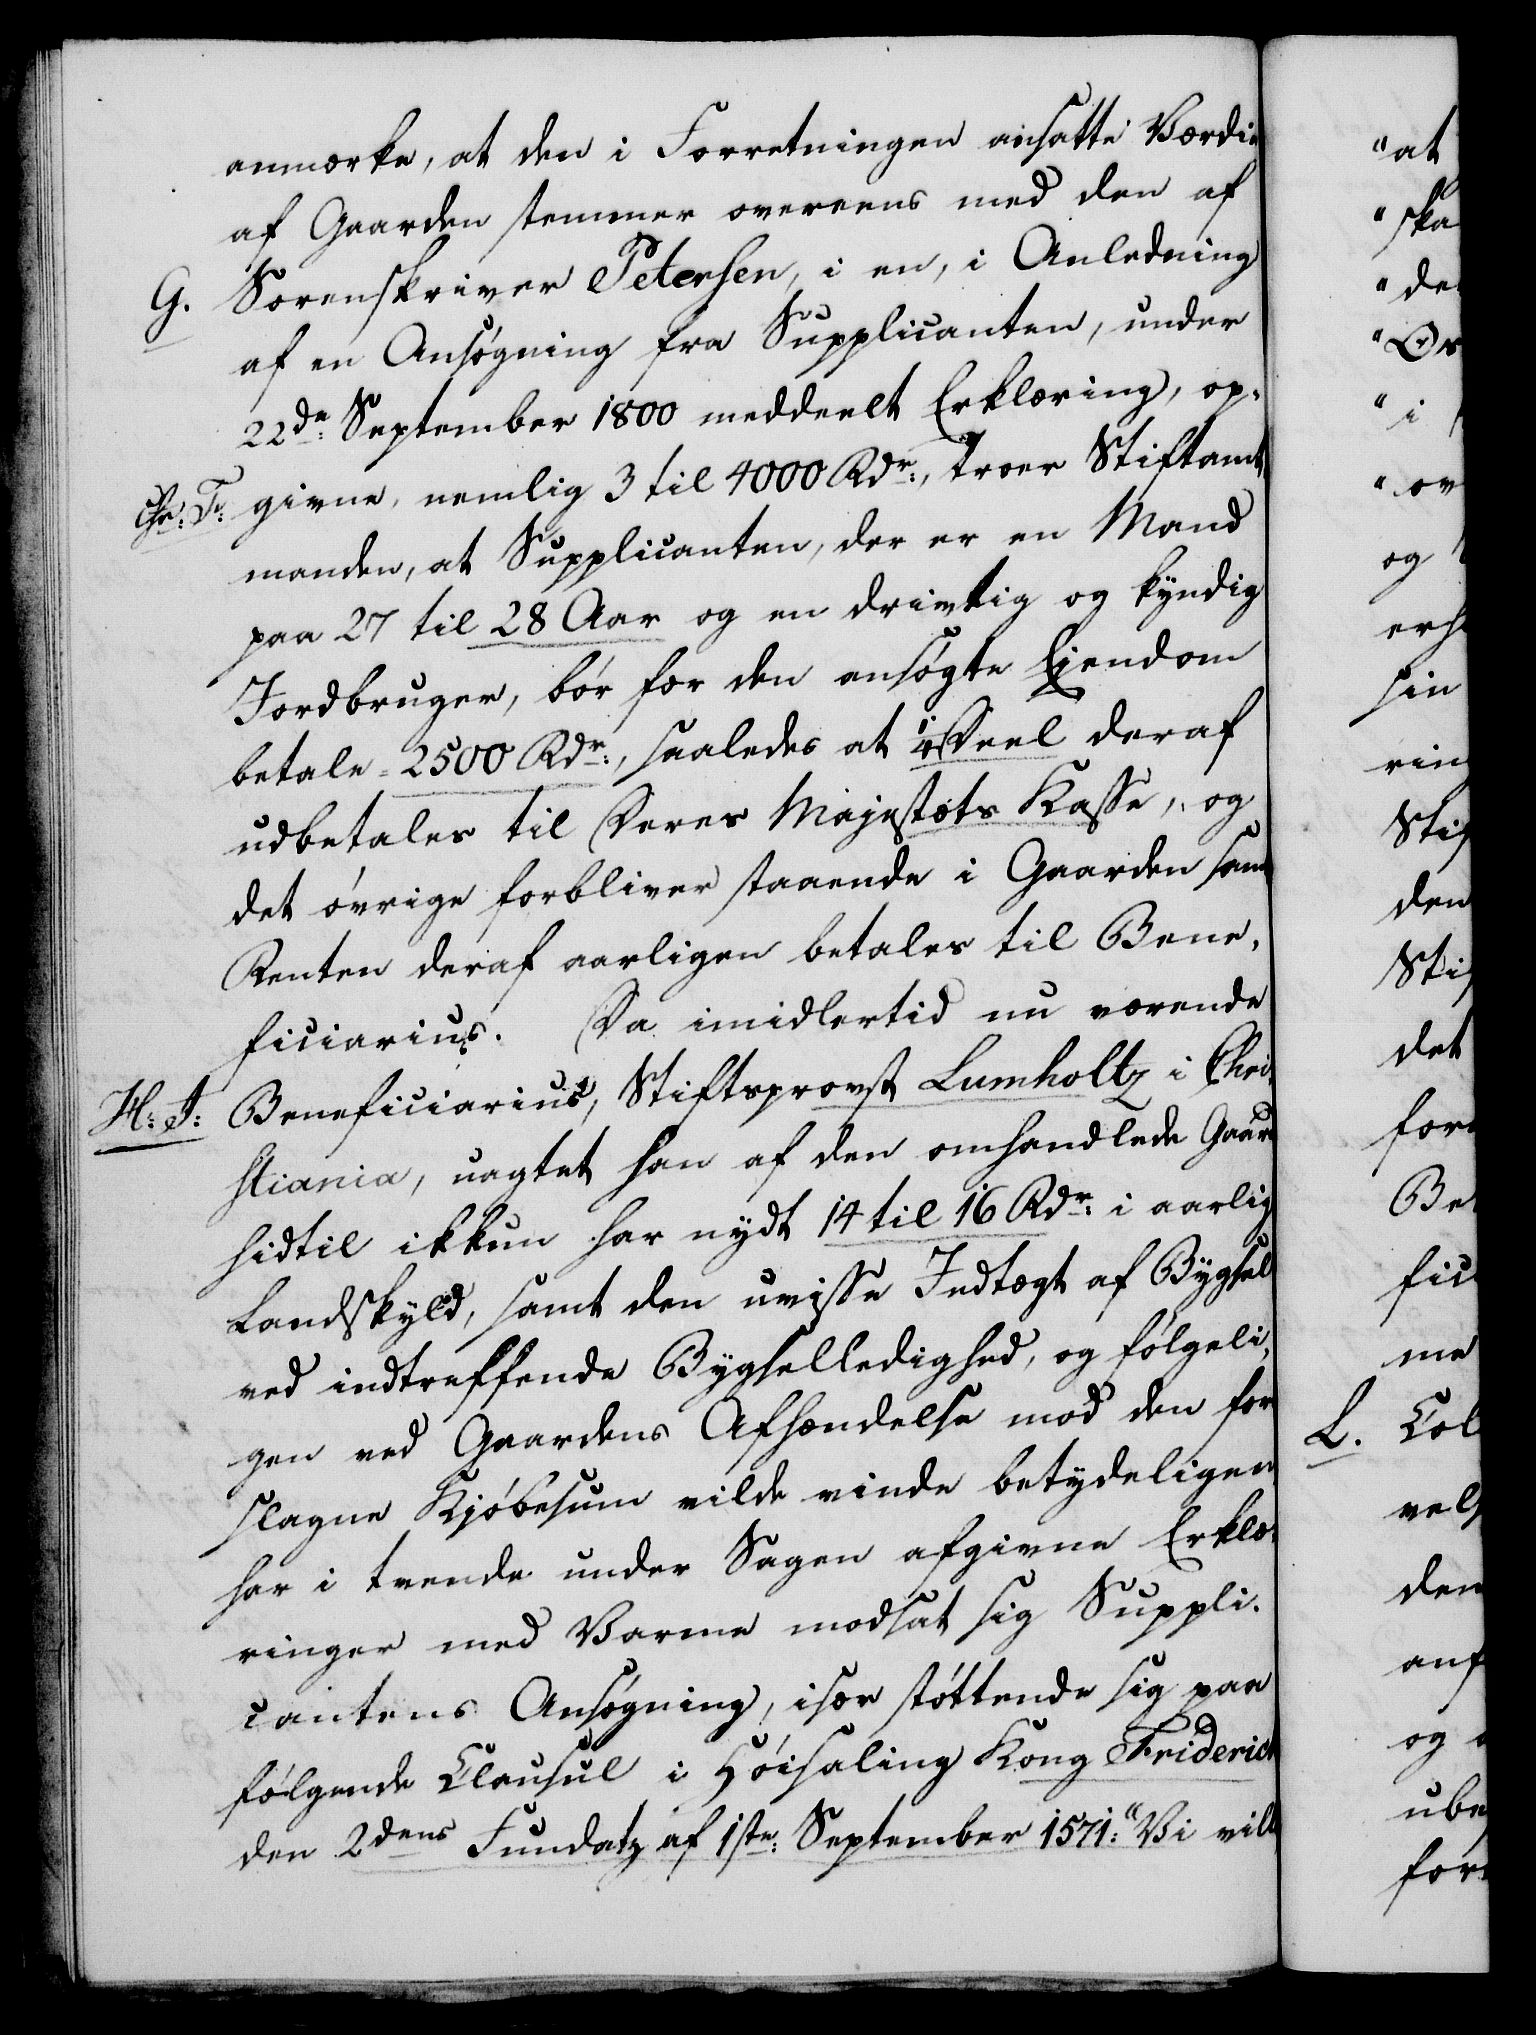 anmærke, at den i Forretningen ansatte Værdie
af Gaarden stemmer overeens med den af
G. Sorenskriver Petersen, i en, i Anledning
af en Ansøgning fra Supplicanten, under
22de: September 1800 meddeelt Erklæring, op-
Chr: F: givne, nemlig 3 til 4000 Rdr:, troer Stiftamt-
manden, at Supplicanten, der er en Mand
paa 27 til 28 Aar og en drivtig og kyndig
Jordbruger, bør for den ansøgte Ejendom
betale 2500 Rdr:, saaledes at 1/4 Deel deraf
udbetales til Deres Majestæts Kasse, og
det øvrige forbliver staaende i Gaarden samt
Renten deraf aarligen betales til Bene-
ficiarius. Da imidlertid nu værende
H: I: Beneficiarius, Stiftsprovst Lumholtz i Chri-
stiania, uagtet han af den omhandlede Gaard
hidtil ikkun har nydt 14 til 16 Rdr: i aarlig
Landskyld, samt den uvisse Indtægt af Bygsel
ved indtreffende Bygselledighed, og følgeli-
gen ved Gaardens Afhændelse mod den fore
slagne Kjøbesum vilde vinde betydeligen
har i tvende under Sagen afgivne Erklæ-
ringer med Varme modsat sig Suppli-
cantens Ansøgning, især støttende sig paa
følgende Clausul i Høisalig Kong Friderich
den 2dens Fundatz af 1ste: September 1571: "Vi ville
"at
"ska
"de
"Or
"i
"ov
og
erh
sin
ring
Stif
den
Stif
det
for
Be
fic
me
L. Col
vel
den
anf
og
ube
for